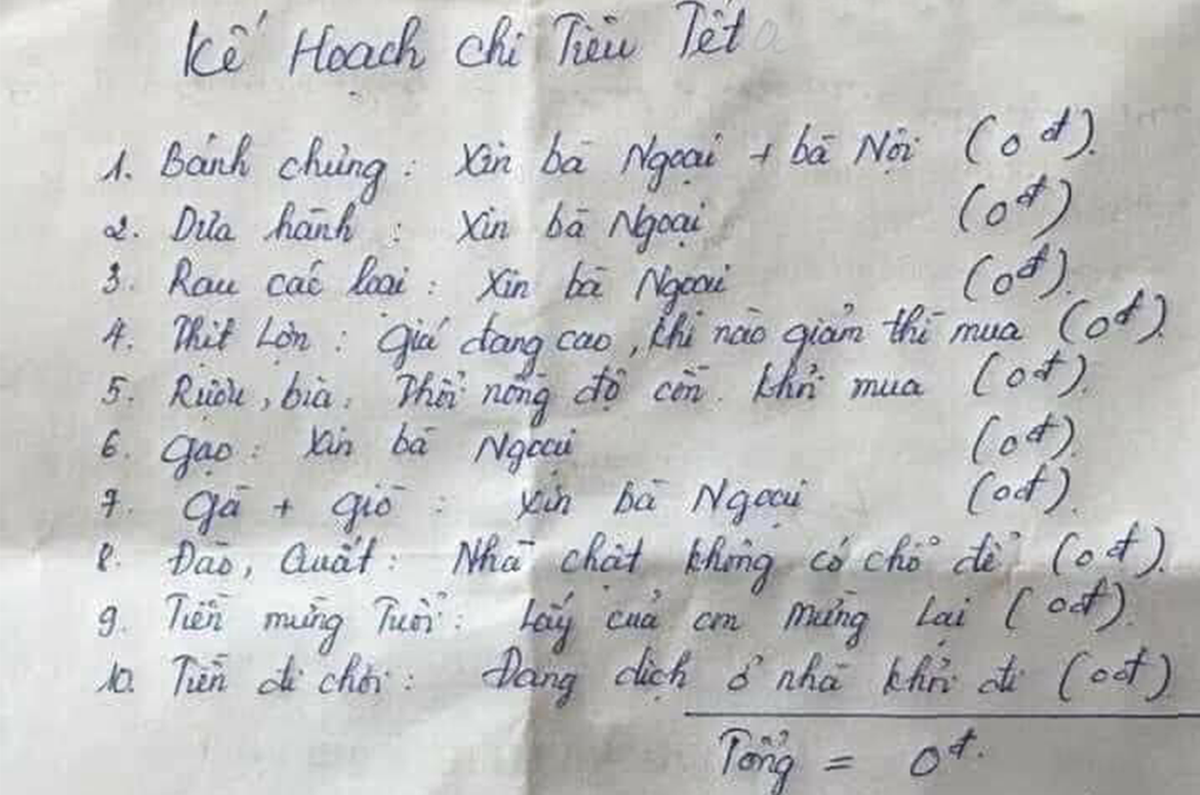 Kế Hoạch chi Tiêu Tết
1. Bánh chưng : Xin bà Ngoại + bà Nội (0đ).
2. Dưa hành : Xin bà Ngoại (0đ)
3. Rau các loại : Xin bà Ngoại (0đ).
4. Thịt Lợn : Giá đang cao, khi nào giảm thì mua (0đ).
5. Rượu, bia. Thổi nồng độ cồn. khỏi mua (0đ).
6. Gạo : Xin bà Ngoại (0đ).
7. Gà + giò : Xin bà Ngoại (0đ).
8. Đào, Quất : Nhà chật không có chỗ để (0đ).
9. Tiền mừng Tuổi : Lấy của cm mừng Lại (0đ).
10. Tiền đi chơi : Đang dịch ở nhà khỏi đi (0đ)
Tổng = 0đ.